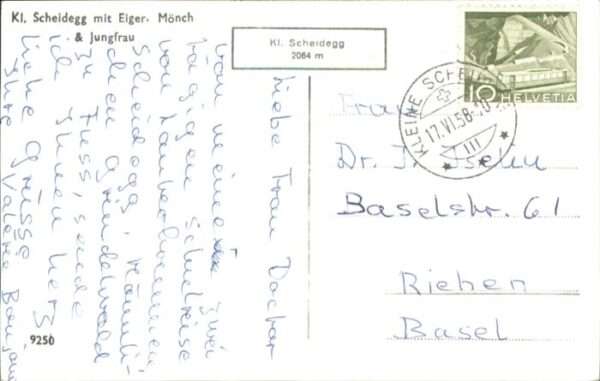 Kl. Scheidegg mit Eiger- Mönch
& Jungfrau
Kl. Scheidegg
2064 m
10 HELVETIA
KLEINE SCHEIDEGG
17.VI.58-10
III
Liebe Frau Doctor
Von meiner zwei
tägigen Schulreise
von Lauterbrunnen
Scheidegg, Männli-
chen Grindelwald
zu Fuss, sende
ich Ihnen herz
liche Grüsse
Ihre Valerie Bonjour
Frau
Dr. Iselin
Baselstr. 61
Riehen
Basel
9250